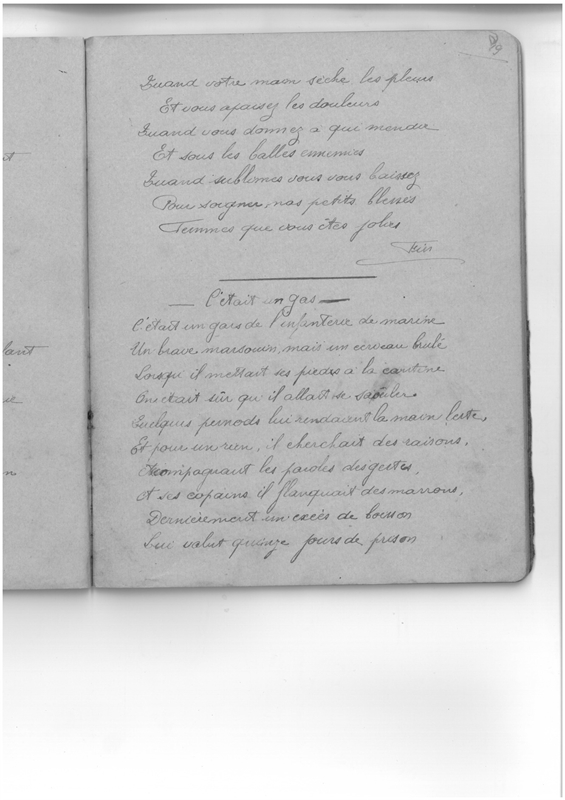 Quand votre main sèche les pleurs
Et vous apaisez les douleurs
Quand vous donnez a qui mendie
Et sous les balles ennemies
Quand sublimes vous vous baissez
Pour soigner nos petits blessés
Femmes que vous êtes jolies
— C'était un gas —
C'était un gars de l'infanterie de marine
Un brave marsouin, mais un cerveau brulé
Lorsqu'il mettait ses pieds à la cantine
On était sûr qu'il allait se saoûler
Quelques pernods lui rendaient la main leste,
Et pour un rien, il cherchait des raisons,
Accompagnant les paroles des gestes,
A ses copains il flanquait des marrons,
Dernièrement un excès de boisson
Lui valut quinze jours de prison
ant